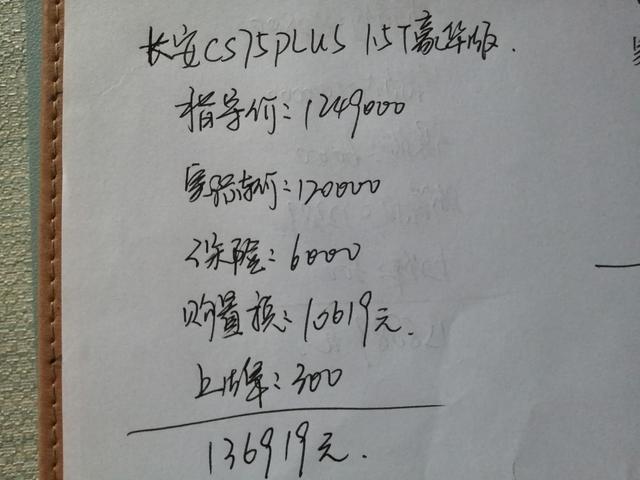 长安CS75PLUS 1.5T豪华版.
指导价:1249000
实际车价:120000
保险:6000
购置税:10619元.
上牌:300
136919元.